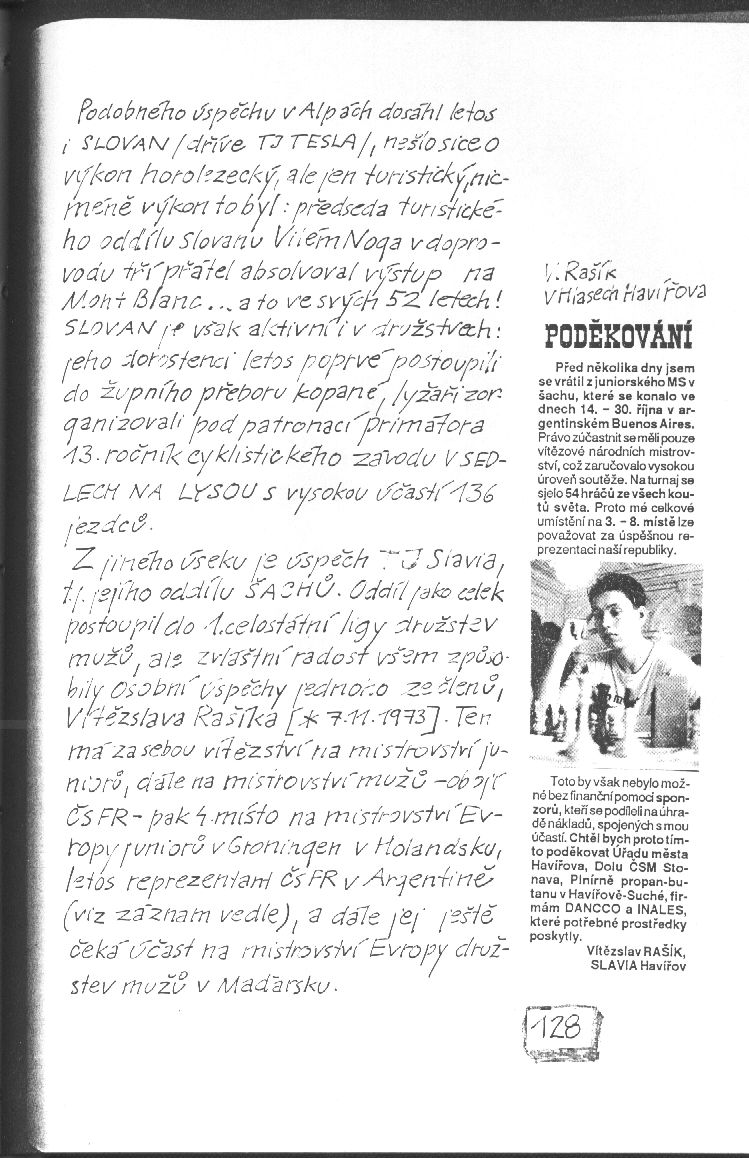 Podobného úspěchu v Alpách dosáhl letos
i SLOVAN /dříve TJ TESLA/, nešlo sice o
výkon horolezecký, ale jen turistický, nic-
méně výkon to byl: předseda turistické-
ho oddílu Slovanu Vilém Noga v dopro-
vodu tří přátel absolvoval výstup na
Mont Blanc... a to ve svých 52 letech!
SLOVAN je však aktivní i v družstvech:
jeho dorostenci letos poprvé postoupili
do župního přeboru kopané, lyžaři zor-
ganizovali pod patronací primátora
13. ročník cyklistického závodu V SED-
LECH NA LYSOU s vysokou účastí 136
jezdců.
Z jiného úseku je úspěch TJ Slavia,
tj. jejího oddílu ŠACHŮ. Oddíl jako celek
postoupil do 1. celostátní ligy družstev
mužů, ale zvláštní radost všem způso-
bily osobní úspěchy jednoho ze členů,
Vítězslava Rašíka [* 7.11.1973]. Ten
má za sebou vítězství na mistrovství ju-
niorů, dále na mistrovství mužů – obojí
ČSFR – pak 4. místo na mistrovství Ev-
ropy juniorů v Groningen v Holandsku,
letos reprezentant ČSFR v Argentině
(viz záznam vedle), a dále jej ještě
čeká účast na mistrovství Evropy druž-
stev mužů v Maďarsku.
V. Rašík
v Hlasech Havířova
PODĚKOVÁNÍ
Před několika dny jsem
se vrátil z juniorského MS v
šachu, které se konalo ve
dnech 14. – 30. října v ar-
gentinském Buenos Aires.
Právo zúčastnit se měli pouze
vítězové národních mistrov-
ství, což zaručovalo vysokou
úroveň soutěže. Na turnaj se
sjelo 54 hráčů ze všech kou-
tů světa. Proto mé celkové
umístění na 3. – 8. místě lze
považovat za úspěšnou re-
prezentaci naší republiky.
Toto by však nebylo mož-
né bez finanční pomoci spon-
zorů, kteří se podíleli na úhra-
dě nákladů, spojených s mou
účastí. Chtěl bych proto tím-
to poděkovat Úřadu města
Havířova, Dolu ČSM Sto-
nava, Plnírně propan-bu-
tanu v Havířově-Suché, fir-
mám DANCCO a INALES,
které potřebné prostředky
poskytly.
Vítězslav RAŠÍK,
SLAVIA Havířov
128